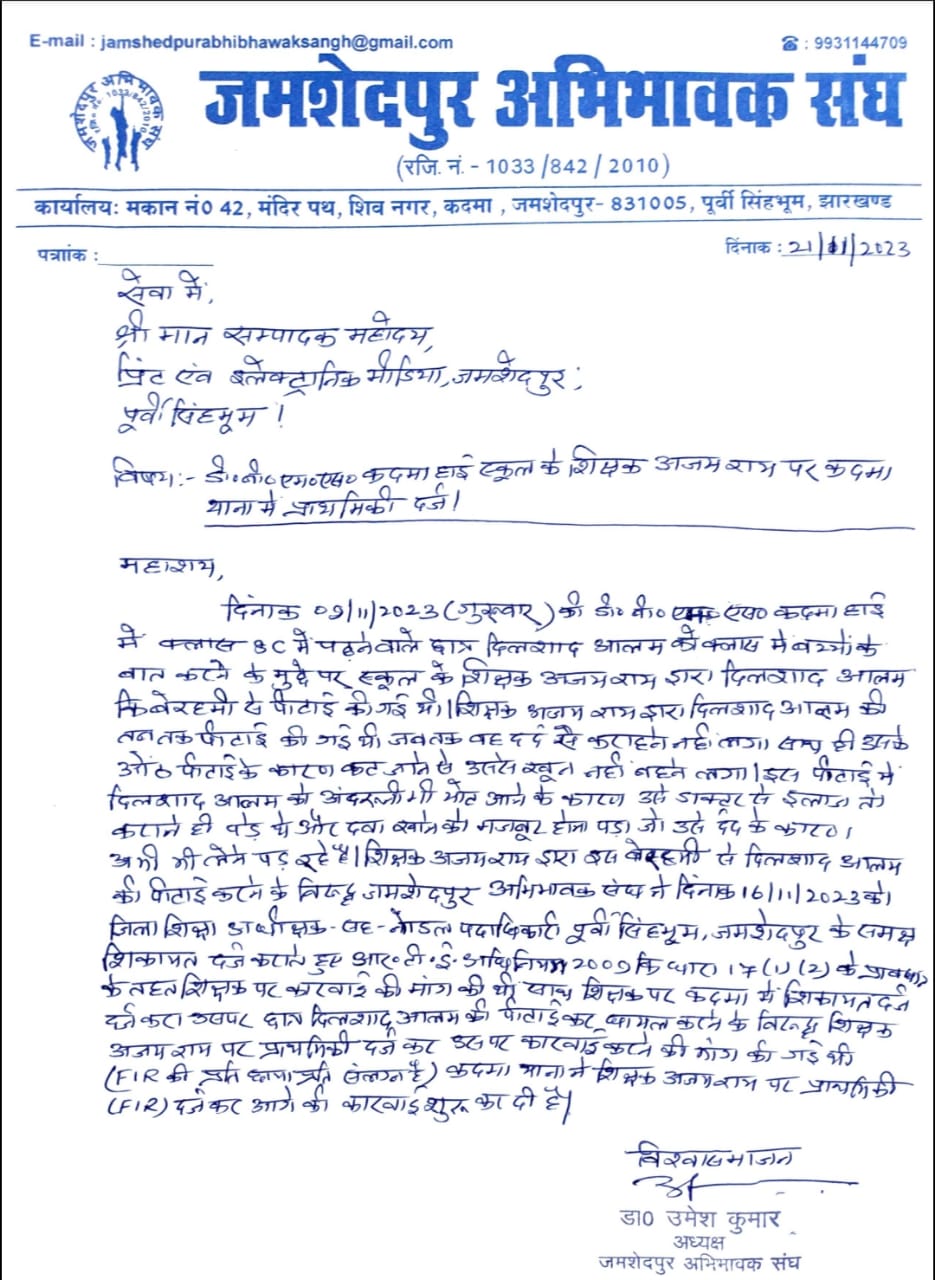 E-mail : jamshedpurabhibhawaksangh@gmail.com
☎ : 9931144709
जमशेदपुर अभिभावक संघ
जमशेदपुर अभिभावक संघ
रजि. नं. 1033/842/2010
(रजि. नं. - 1033 /842 / 2010)
कार्यालयः मकान नं0 42, मंदिर पथ, शिव नगर, कदमा , जमशेदपुर- 831005, पूर्वी सिंहभूम, झारखण्ड
पत्रांाक :
दिंनाक : 21/11/2023
सेवा में,
श्री मान सम्पादक महोदय,
प्रिंट एंव इलेक्ट्रानिक मीडिया, जमशेदपुर,
पूर्वी सिंहभूम !
विषय:- डी॰बी॰एम॰एस॰ कदमा हाई स्कूल के शिक्षक अजय राय पर कदमा
थाना में प्राथमिकी दर्ज।
महाशय,
दिंनाक 09/11/2023 (गुरुवार) को डी॰ बी॰ एम॰ एस॰ कदमा हाई
में क्लास 8C में पढ़ने वाले छात्र दिलशाद आलम को क्लास में बच्चों के
बात करने के मुद्दे पर स्कूल के शिक्षक अजय राय द्वारा दिलशाद आलम
कि बेरहमी से पीटाई की गई थी। शिक्षक अजय राय द्वारा दिलशाद आलम की
तबतक पीटाई की गई थी जबतक वह दर्द से कराहने नहीं लगा। साथ ही उसके
ओंठ पीटाई के कारण कट जाने से उससे खून नहीं बहने लगा। इस पीटाई में
दिलशाद आलम को अंदरूनी भी चोट आने के कारण उसे डाक्टर से इलाज तो
कराने ही पड़े थे और दवा खाने को मजबूर होना पड़ा जो उसे दर्द के कारण
अभी भी लेने पड़ रहे है। शिक्षक अजय राय द्वारा इस बेरहमी से दिलशाद आलम
की पीटाई करने के विरुद्ध जमशेदपुर अभिभावक संघ ने दिनांक 16/11/2023 को
जिला शिक्षा अधीक्षक-सह-नोडल पदाधिकारी पूर्वी सिंहभूम, जमशेदपुर के समक्ष
शिकायत दर्ज कराते हुए आर॰टी॰ई॰ अधिनियम 2009 कि धारा 17(1)(2) के प्रावधान
के तहत शिक्षक पर कारवाई की मांग की थी साथ शिक्षक पर कदमा में शिकायत दर्ज
दर्ज करा उसपर छात्र दिलशाद आलम की पीटाई कर घायल करने के विरुद्ध शिक्षक
अजय राय पर प्राथमिकी दर्ज कर उस पर कारवाई करने की मांग की गई थी
(FIR की प्रति छाया प्रति संलग्न है) कदमा थाना ने शिक्षक अजय राय पर प्राथमिकी
(FIR) दर्ज कर आगे की कारवाई शुरू कर दी है।
विश्वासभाजन
डा0 उमेश कुमार
अध्यक्ष
जमशेदपुर अभिभावक संघ